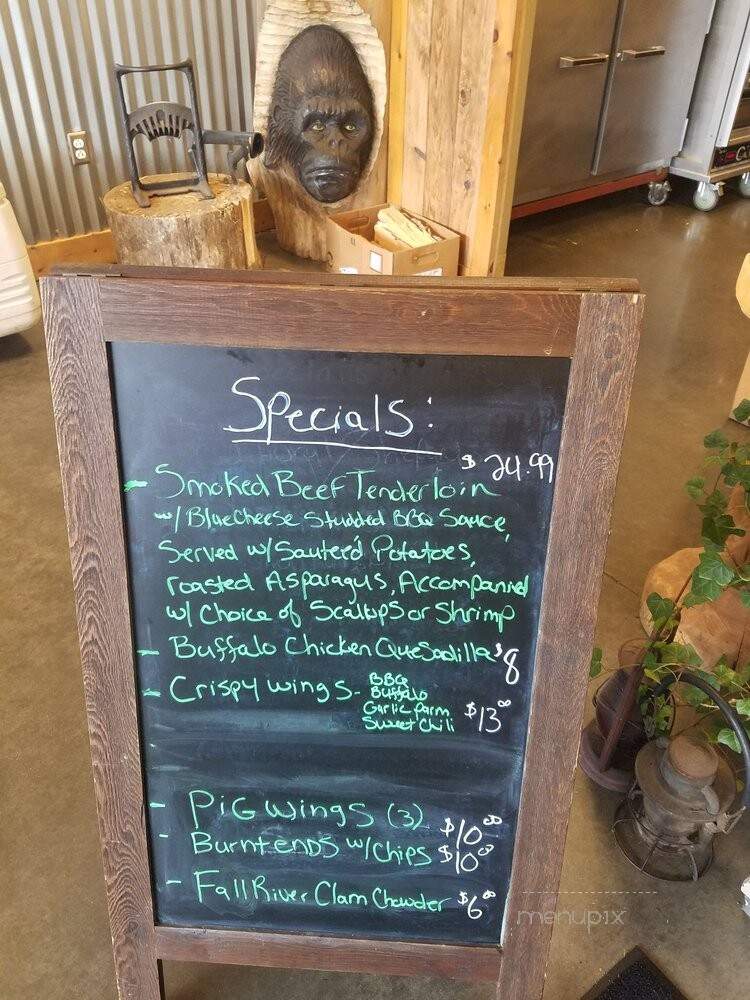 Specials:
$ 24.99
- Smoked Beef Tenderloin
w/ Blue Cheese Studded BBQ Sauce,
Served w/ Sauteé'd Potatoes,
roasted Asparagus, Accompanied
w/ Choice of Scallops or Shrimp
- Buffalo Chicken Quesadilla $8
- Crispy wings - BBQ
Buffalo
Garlic Parm
Sweet Chili $13.00
- Pig wings (3) $10.00
- Burnt ends w/ chips $10.00
- Fall River Clam Chowder $6.00
menupix